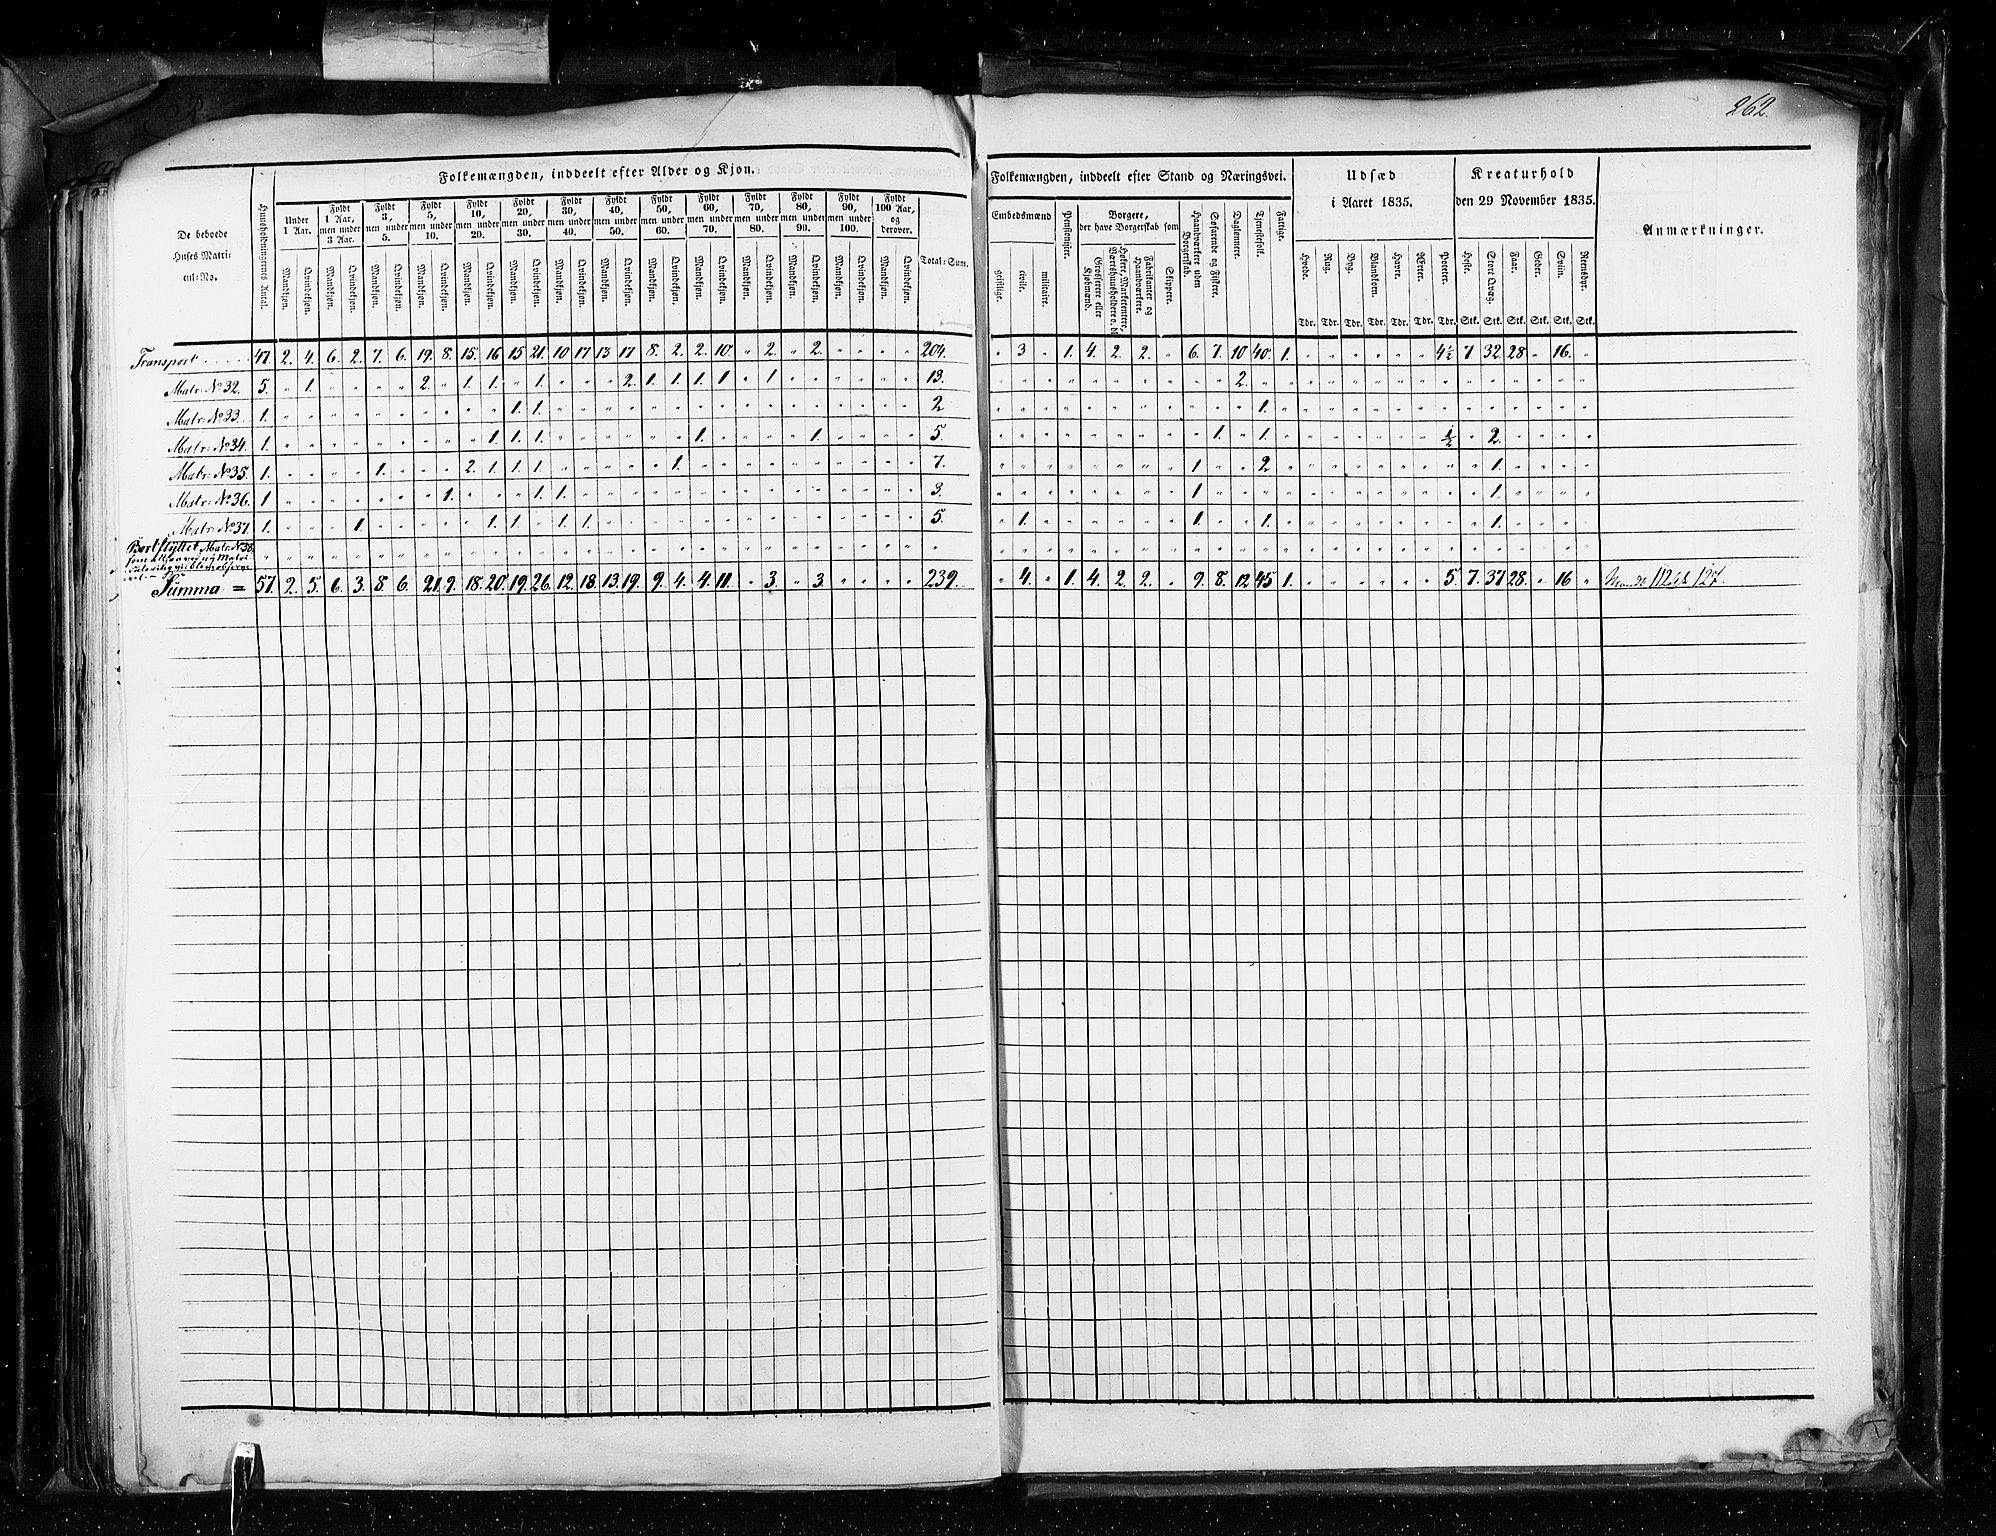 262.
Folkemængden, inddeelt efter Alder og Kjøn.
De beboede Huses Matricul-No.
Huusholdningernes Antal.
Under 1 Aar.
Fyldt 1 Aar, men under 3 Aar.
Fyldt 3, men under 5.
Fyldt 5, men under 10.
Fyldt 10, men under 20.
Fyldt 20, men under 30.
Fyldt 30, men under 40.
Fyldt 40, men under 50.
Fyldt 50, men under 60.
Fyldt 60, men under 70.
Fyldt 70, men under 80.
Fyldt 80, men under 90.
Fyldt 90, men under 100.
Fyldt 100 Aar, og derover.
Mandkjøn. Qvindekjøn. Mandkjøn. Qvindekjøn. Mandkjøn. Qvindekjøn. Mandkjøn. Qvindekjøn. Mandkjøn. Qvindekjøn. Mandkjøn. Qvindekjøn. Mandkjøn. Qvindekjøn. Mandkjøn. Qvindekjøn. Mandkjøn. Qvindekjøn. Mandkjøn. Qvindekjøn. Mandkjøn. Qvindekjøn. Mandkjøn. Qvindekjøn. Mandkjøn. Qvindekjøn. Mandkjøn. Qvindekjøn.
Total-Sum.
Folkemængden, inddeelt efter Stand og Næringsvei.
Embedsmænd
geistlige. civile. militaire.
Pensionister.
Borgere, der have Borgerskab som
Grosserere eller Kjøbmænd.
Høkere, Marketentere, Værtshuusholdere o. dl.
Fabrikanter og Haandværkere.
Skippere.
Haandværkere uden Borgerskab.
Søfarende og Fiskere.
Daglønnere.
Tjenestefolk.
Fattige.
Udsæd i Aaret 1835.
Hvede. Rug. Byg. Blandkorn. Havre. Ærter. Poteter.
Tdr. Tdr. Tdr. Tdr. Tdr. Tdr. Tdr.
Kreaturhold den 29 November 1835.
Heste. Stort Qvæg. Faar. Geder. Sviin. Rensdyr.
Stk. Stk. Stk. Stk. Stk. Stk.
Anmærkninger.
Transport 47. 2. 4. 6. 2. 7. 6. 19. 8. 15. 16 15 21. 10 17 13 17 8. 2. 2. 10. " 2. " 2. " " " " 204. " 3 " 1. 4. 2. 2. " 6. 7. 10 40. 1. " " " " " " 4½ 7 32. 28 " 16. "
Matr: No 32. 5. " 1. " " " " 2. " 1. 1. " 1. " " " 2. 1. 1. 1. 1 " 1 " " " " " " 13. " " " " " " " " " " 2. " " " " " " " " " " " " " " "
Matr: No 33. 1. " " " " " " " " " " 1. 1. " " " " " " " " " " " " " " " " 2 " " " " " " " " " " " 1. " " " " " " " " " " " " " "
Matr: No 34. 1. " " " " " " " " " 1. 1. 1. " " " " " " 1. " " " " 1. " " " " 5. " " " " " " " " " 1. " 1. " " " " " " " ½ " 2. " " " "
Matr: No 35. 1. " " " " 1. " " " 2. 1. 1. 1. " " " " " 1. " " " " " " " " " " 7. " " " " " " " " 1 " " 2 " " " " " " " " " 1. " " " "
Matr: No 36. 1 " " " " " " " 1. " " " 1. 1. " " " " " " " " " " " " " " " 3. " " " " " " " " 1 " " " " " " " " " " " " 1. " " " "
Matr: No 37. 1. " " " 1. " " " " " 1. 1. " 1. 1. " " " " " " " " " " " " " " 5. " 1. " " " " " " 1. " " 1. " " " " " " " " " 1. " " " "
Bortflyttet Matr: No 38.
Summa = 57. 2. 5. 6. 3. 8. 6. 21. 9. 18. 20. 19. 26. 12. 18. 13. 19. 9. 4. 4. 11. " 3. " 3. " " " " 239. " 4. " 1. 4. 2. 2. " 9. 8. 12 45 1. " " " " " " 5. 7. 37 28. " 16 "